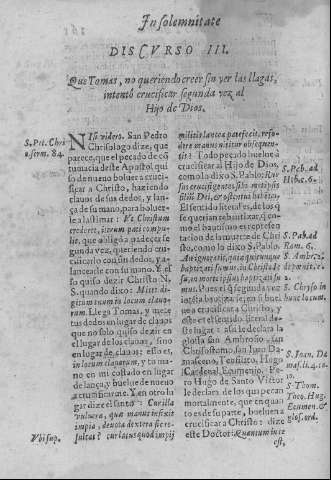 In solemnitate
DISCVRSO III.
Que Tomas, no queriendo creer sin ver las llagas,
intentò crucificar segunda vez al
Hijo de Dios.
S. Pet. Chri
so serm. 84.
NIsi videro. San Pedro
Chrisologo dize, que
parece, que el pecado de cõ
tumacia deste Apostol, qui
so de nueuo boluer a cruci
ficar a Christo, haziendo
clauos de sus dedos, y lan-
ça de su mano, para boluer-
le a lastimar: Vt Christum
crederet, iterum pati compu-
lit, que obligò a padecer se
gunda vez, queriendo cru-
cificarlo con sus dedos, y a-
lancearle con su mano. Y es
so quiso dezir Christo N.
S. quando dixo: Mitte di-
gitum tuum in locum clauorum.
Llega Tomas, y mete
tus dedos en lugar de clauos
que no solo quiso verse en
el lugar de los clauos, sino
en lugar de clauos: esso es,
in locum clauorum, y tu ma-
no en mi costado en lugar
de lança, y buelue de nueuo
a crucificarme. Y en otro lu
gar dize el santo: Cur illa
vulnera, quæ manus infixit
impia, deuota dextera sic re-
sulcat? cur latus quod impij
Vbi sup.
militis lancea patefecit, refo-
dere manus nititur obsequen-
tis? Todo pecado buelue à
crucificar al Hijo de Dios,
como lo dixo S. Pablo: Rur
sus crucifigentes sibi metipsis
filiũ Dei, & ostentui habẽtes.
El sentido literal es, de los q̃
se querian rebautizar, q̃ co-
mo el bautismo es represen
tacion de la muerte de Chri
sto, como lo dixo S. Pablo:
An ignoratis, quia quicunque
baptizati sumus in Christo Ie
su, in morte ipsius baptizati su
mus. Pues el q̃ segunda vez
intẽta bautizarse, en si buel
ue a crucificar a Christo, y
este es el sentido literal des-
te lugar: assi le declara la
glosa san Ambrosio, san
Chrisostomo, san Iuan Da-
masceno, Teofilato, Hugo
Cardenal, Eeumenio. Pe-
ro Hugo de Santo Victor
le declara de los que pecan
mortalmente, que en quan
to es de su parte, bueluen a
crucificar a Christo: dize
este Doctor: Quantum in te
est,
S. Pab. ad
Hebr. c. 6.
S. Pab. ad
Rom. 6.
S. Ambr.
S. Chryso in
hunc locum,
S. Joan. Da
mas. li. 4. c.
10.
S. Thom.
Theo. Hug.
Ecumen. &
glos. ord.